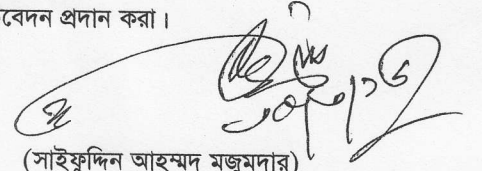 বেদন প্রদান করা।
(সাইফুদ্দিন আহম্মদ মজুমদার)